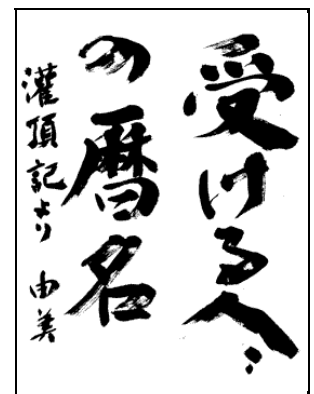 受ける人〻
の暦名
灌頂記より 由美